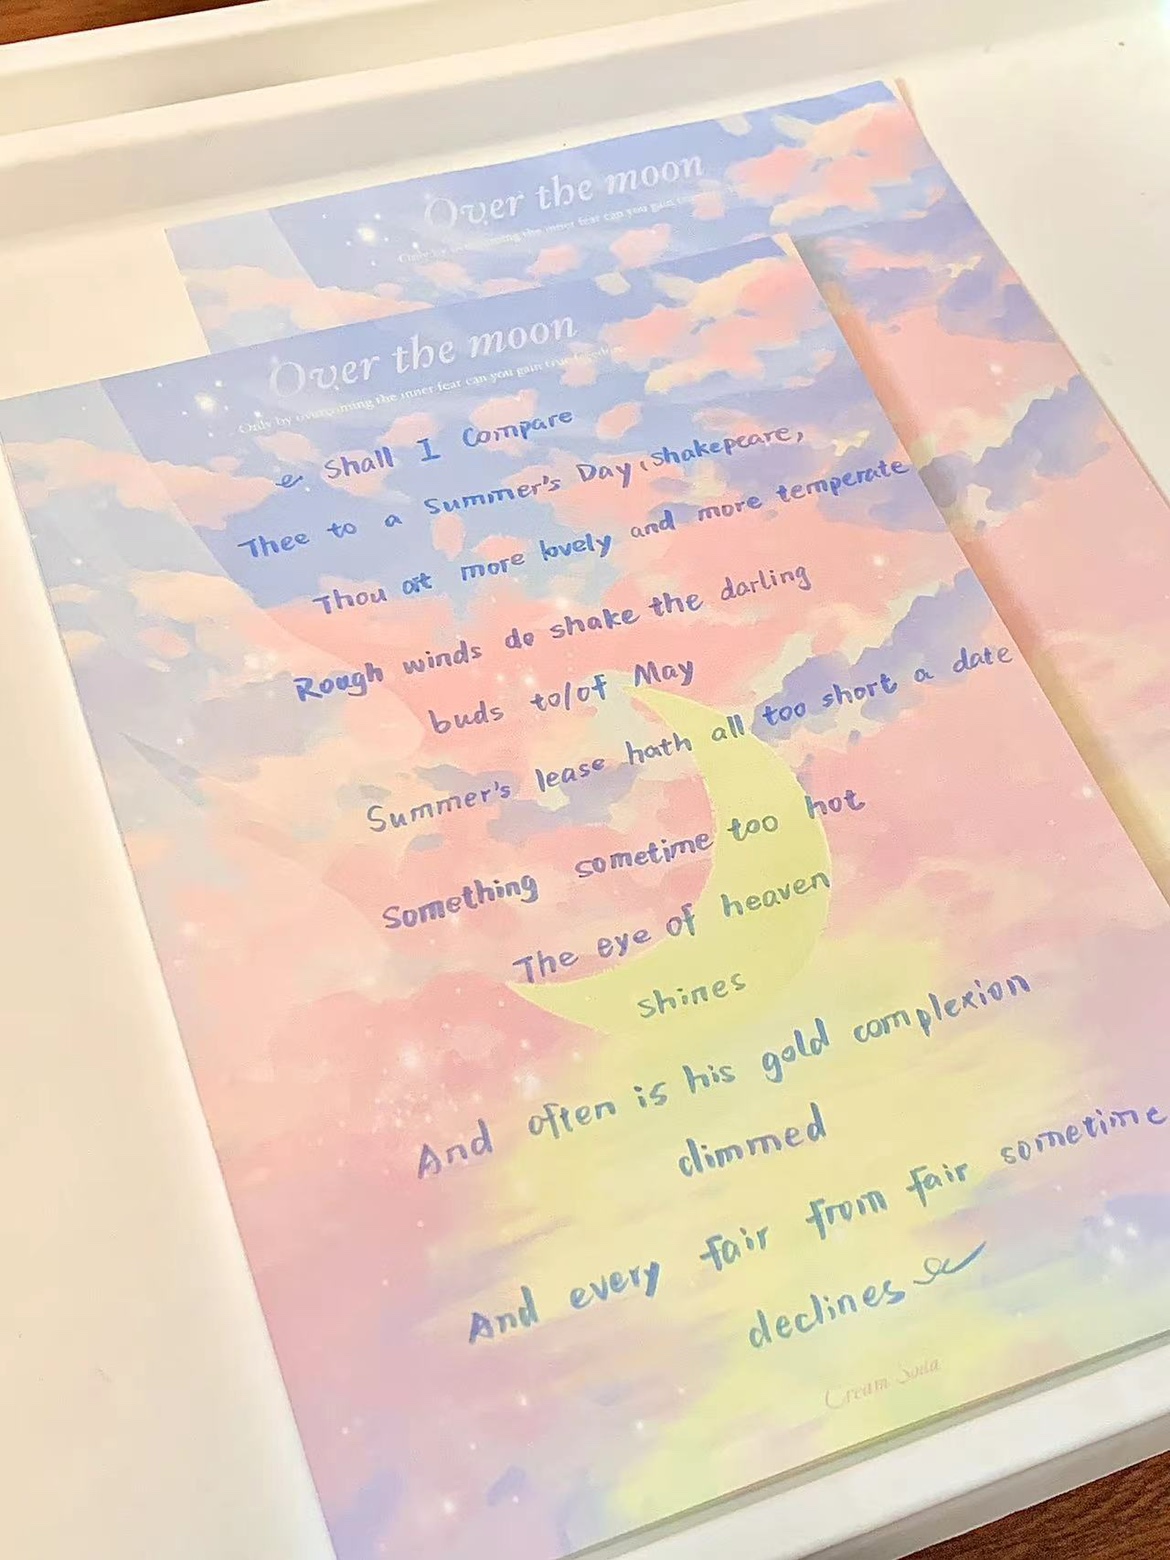 Over the moon
Only by overcoming the inner fear can you gain
Over the moon
Only by overcoming the inner fear can you gain true freedom
Shall I Compare
Thee to a Summer's Day, Shakepeare,
Thou art more lovely and more temperate
Rough winds do shake the darling
buds to/of May
Summer's lease hath all too short a date
Something sometime too hot
The eye of heaven
shines
And often is his gold complexion
dimmed
And every fair from fair sometime
declines
Cream Soda